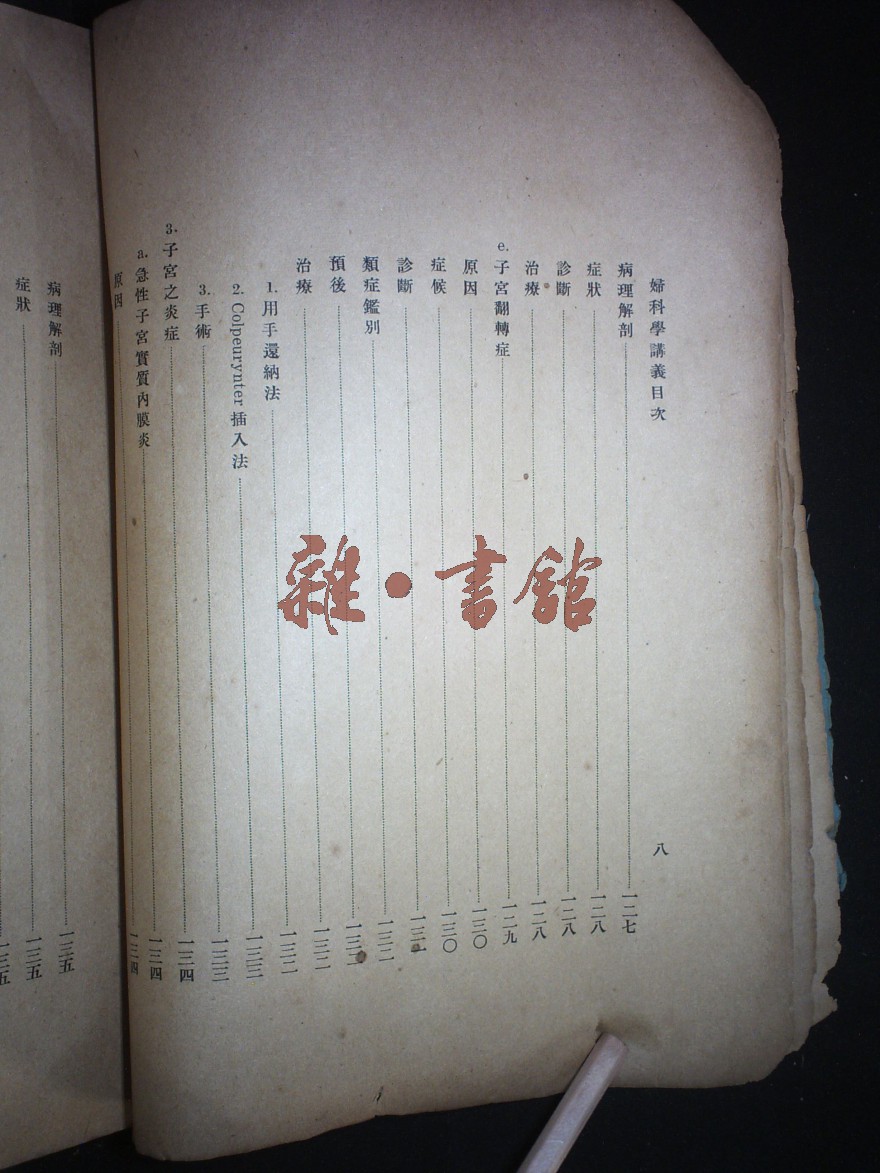 婦科學講義目次
八
病理解剖 一二七
症狀 一二八
診斷 一二八
治療 一二八
e. 子宮翻轉症 一二九
原因 一三〇
症候 一三〇
診斷 一三一
類症鑑別 一三二
預後 一三二
治療 一三二
1. 用手還納法 一三二
2. Colpeurynter 插入法 一三三
3. 手術 一三三
3. 子宮之炎症 一三四
a. 急性子宮實質內膜炎 一三四
原因 一三四
病理解剖 一三五
症狀 一三五
一三五
雜•書館